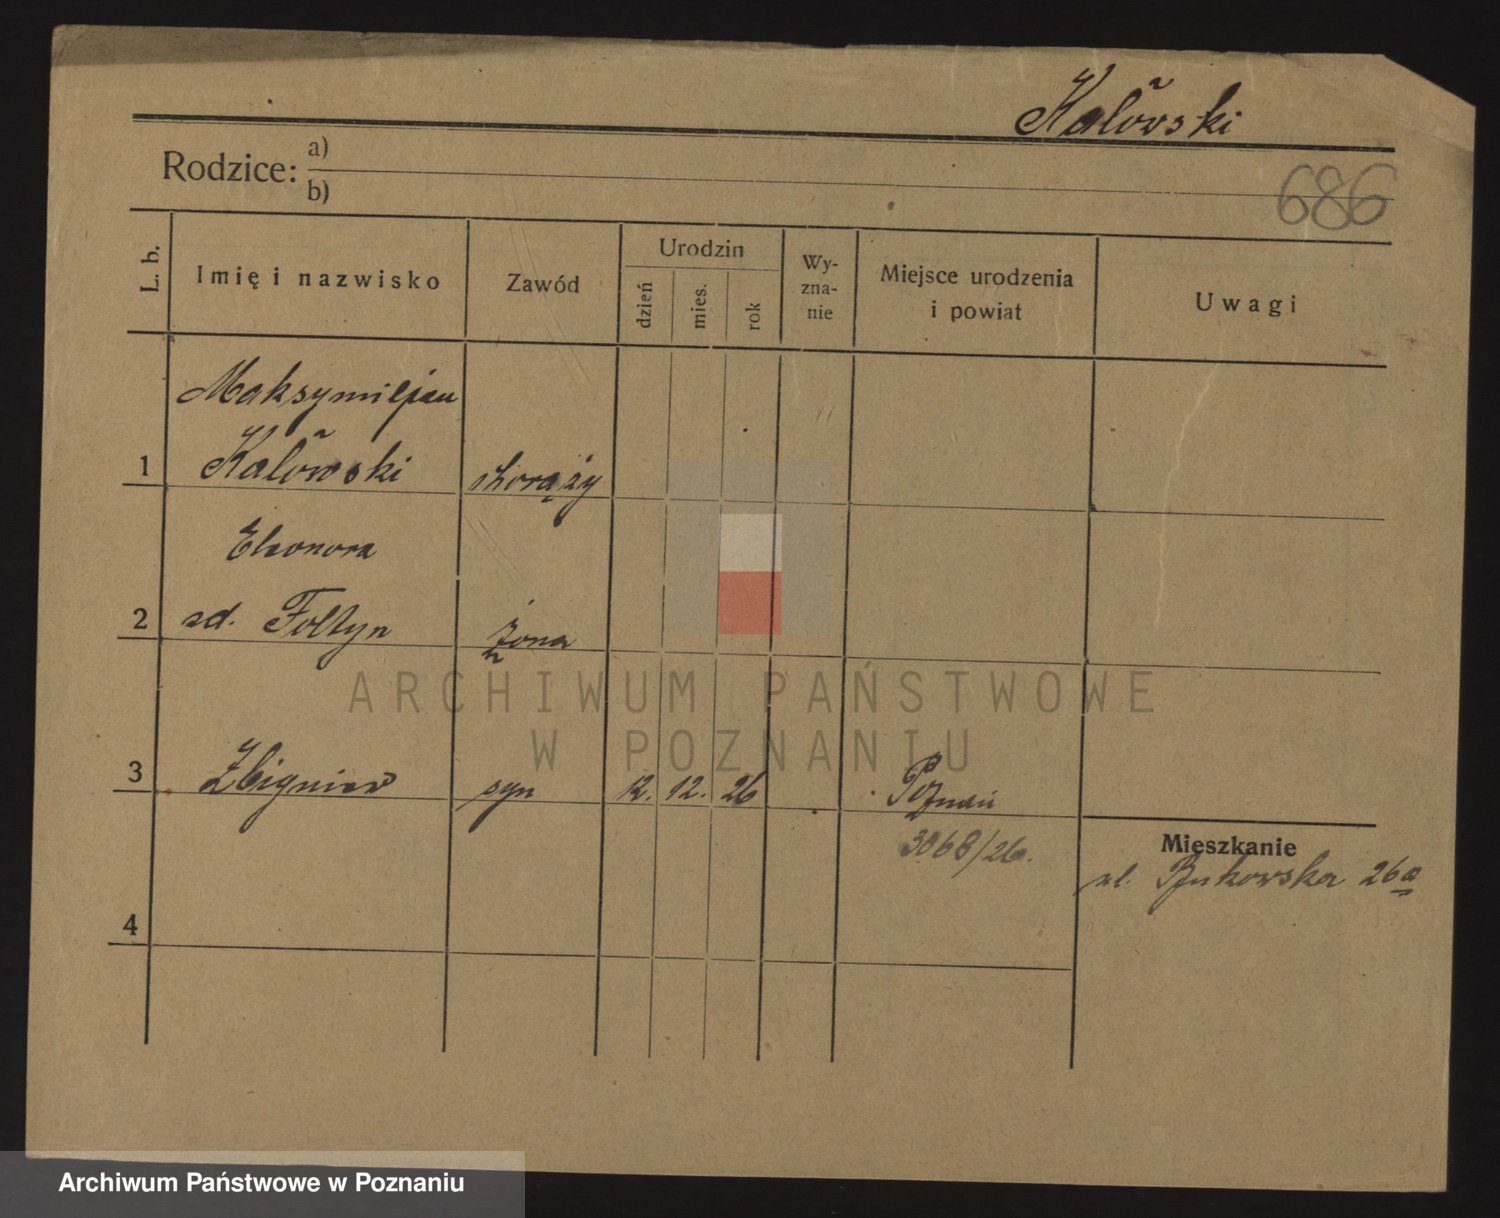 Kalówski
Rodzice: a)
b)
686
L. b.
Imię i nazwisko
Zawód
Urodzin
dzień
mies.
rok
Wy-
zna-
nie
Miejsce urodzenia
i powiat
Uwagi
Maksymiljan
1 Kalówski chorąży
Eleonora
2 zd. Foltyn żona
3 Zbigniew syn 12. 12. 26 Poznań
3068/26.
Mieszkanie
ul. Bukowska 26a
4
ARCHIWUM PAŃSTWOWE
W POZNANIU
Archiwum Państwowe w Poznaniu